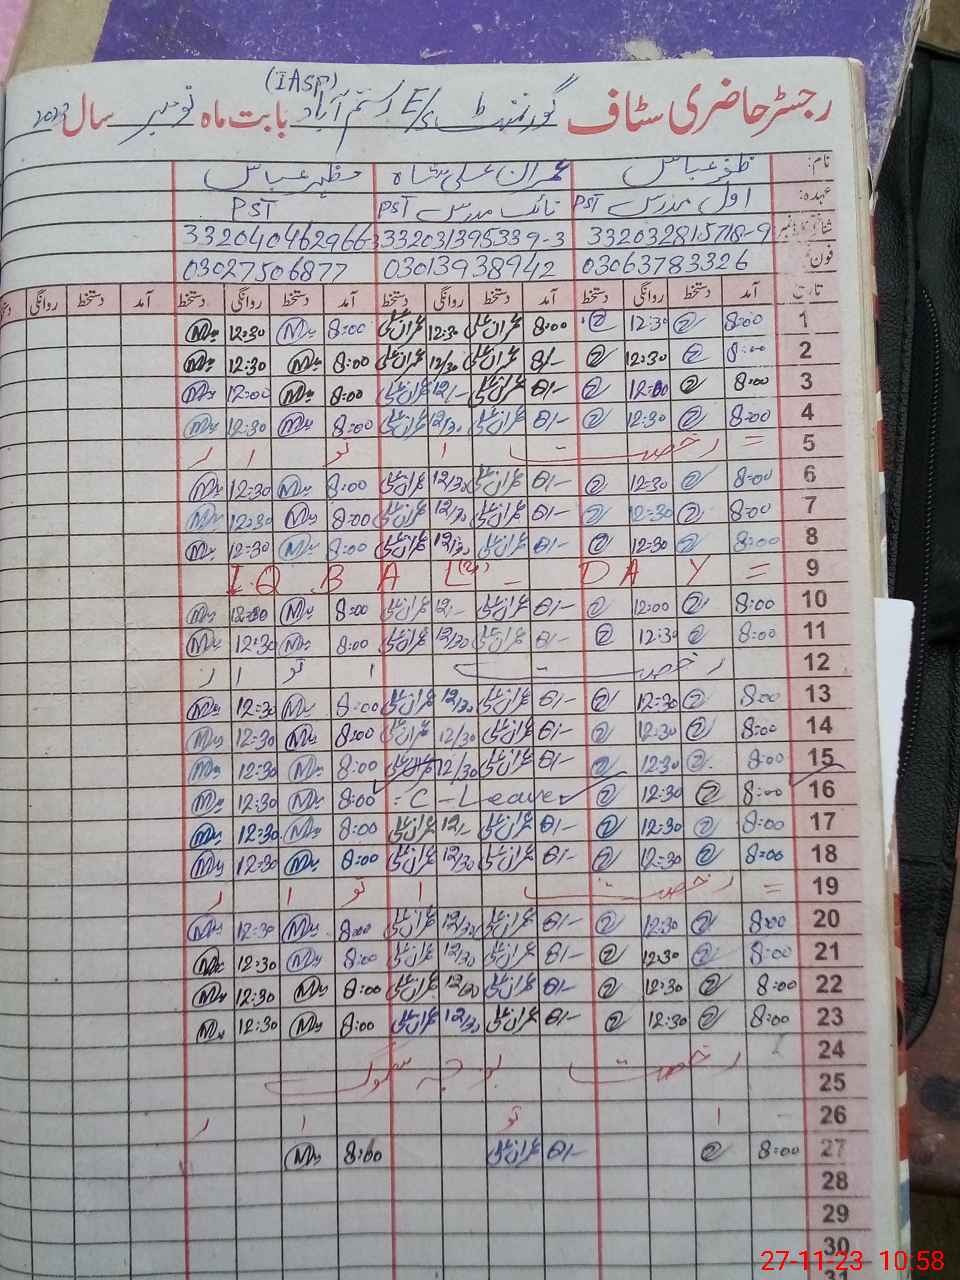 (IASP)
رجسٹر حاضری سٹاف گورنمنٹ E/s رستم آباد بابت ماہ نومبر سال 2023
نام: ظفر عباس عمران علی شاہ مظہر عباس
عہدہ: اول مدرس PST نائب مدرس PST PST
332032815718-9 332031395339-3 332040462966-3
فون 03063783326 03013938942 03027506877
تاریخ آمد دستخط روانگی دستخط آمد دستخط روانگی دستخط آمد دستخط روانگی دستخط آمد دستخط روانگی
1 8:00 12:30 8:00 عمران علی 12:30 عمران علی 8:00 12:30
2 8:00 12:30 8/- عمران علی 12/30 عمران علی 8:00 12:30
3 8:00 12:00 8/- عمران علی 12/- عمران علی 8:00 12:00
4 8:00 12:30 8/- عمران علی 12/30 عمران علی 8:00 12:30
5 = رخصت ا تو ا ر
6 8:00 12:30 8/- عمران علی 12/30 عمران علی 8:00 12:30
7 8:00 12:30 8/- عمران علی 12/30 عمران علی 8:00 12:30
8 8:00 12:30 8/- عمران علی 12/30 عمران علی 8:00 12:30
9 IQBAL - DAY =
10 8:00 12:00 8/- عمران علی 12/- عمران علی 8:00 12:00
11 8:00 12:30 8/- عمران علی 12/30 عمران علی 8:00 12:30
12 رخصت ا تو ا ر
13 8:00 12:30 8/- عمران علی 12/30 عمران علی 8:00 12:30
14 8:00 12:30 8/- عمران علی 12/30 عمران علی 8:00 12:30
15 8:00 12:30 8/- عمران علی 12/30 عمران علی 8:00 12:30
16 8:00 12:30 C-Leave 8:00 12:30
17 8:00 12:30 8/- عمران علی 12/- عمران علی 8:00 12:30
18 8:00 12:30 8/- عمران علی 12/30 عمران علی 8:00 12:30
19 = رخصت ا تو ا ر
20 8:00 12:30 8/- عمران علی 12/30 عمران علی 8:00 12:30
21 8:00 12:30 8/- عمران علی 12/30 عمران علی 8:00 12:30
22 8:00 12:30 8/- عمران علی 12/30 عمران علی 8:00 12:30
23 8:00 12:30 8/- عمران علی 12/30 عمران علی 8:00 12:30
24 رخصت بوجہ سموگ
25
26 ا تو ا ر
27 8:00 8/- عمران علی 8:00
28
29
30
31
27-11-23 10:58